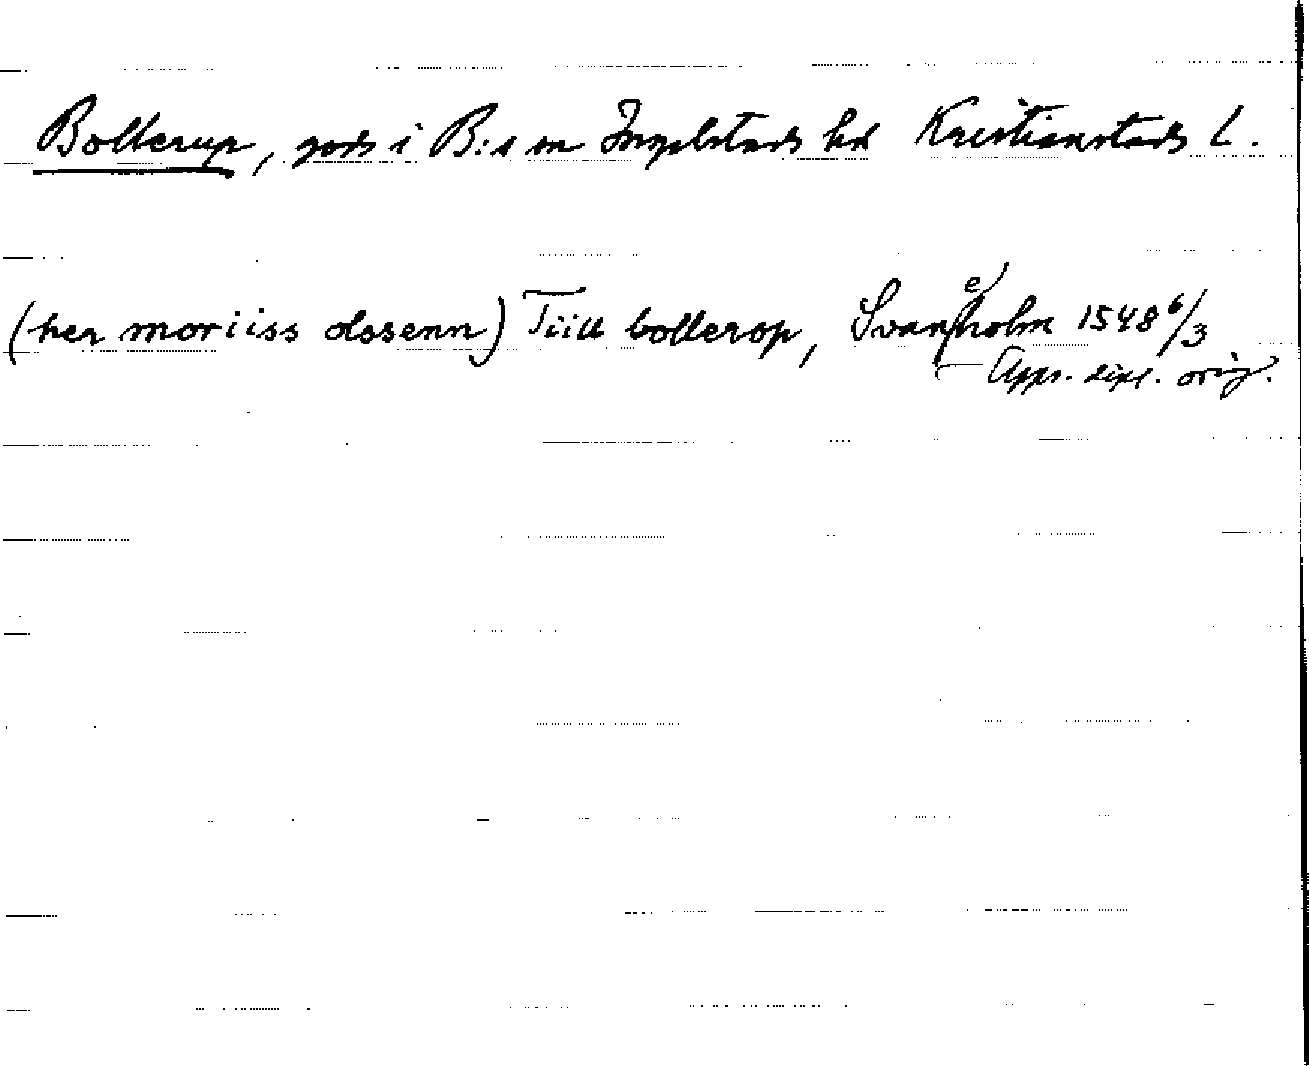 Bollerup, gods i B:s sn Ingelstads hd Kristianstads L.
(her moriiss olssenn) Tiill bollerop, Svaneholm 1548 6/3
Upps. dipl. orig.